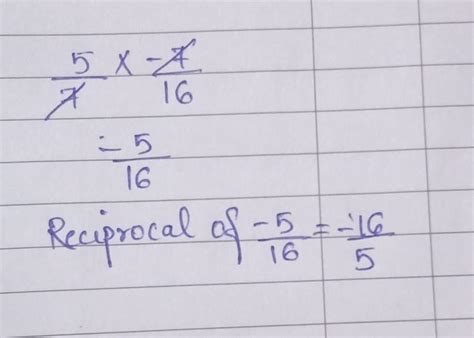 5/7 × -7/16
= 5/16
Reciprocal of -5/16 = -16/5